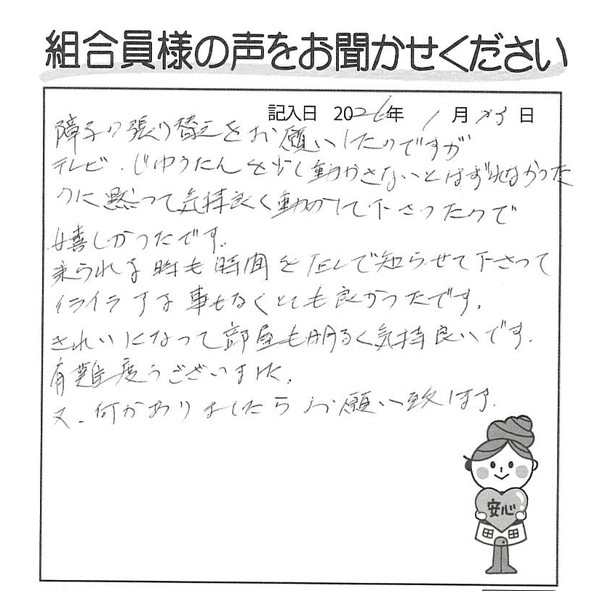 組合員様の声をお聞かせください
記入日 2026年 1月23日
障子の張り替えをお願いしたのですが
テレビ、じゆうたんを少し動かさないとはずれなかった
のに黙って気持良く動かして下さったので
嬉しかったです。
来られる時も時間をTELで知らせて下さって
イライラする事もなくとても良かったです。
きれいになって部屋も明るく気持良いです。
有難度うございました。
又、何かありましたらお願い致します
安心